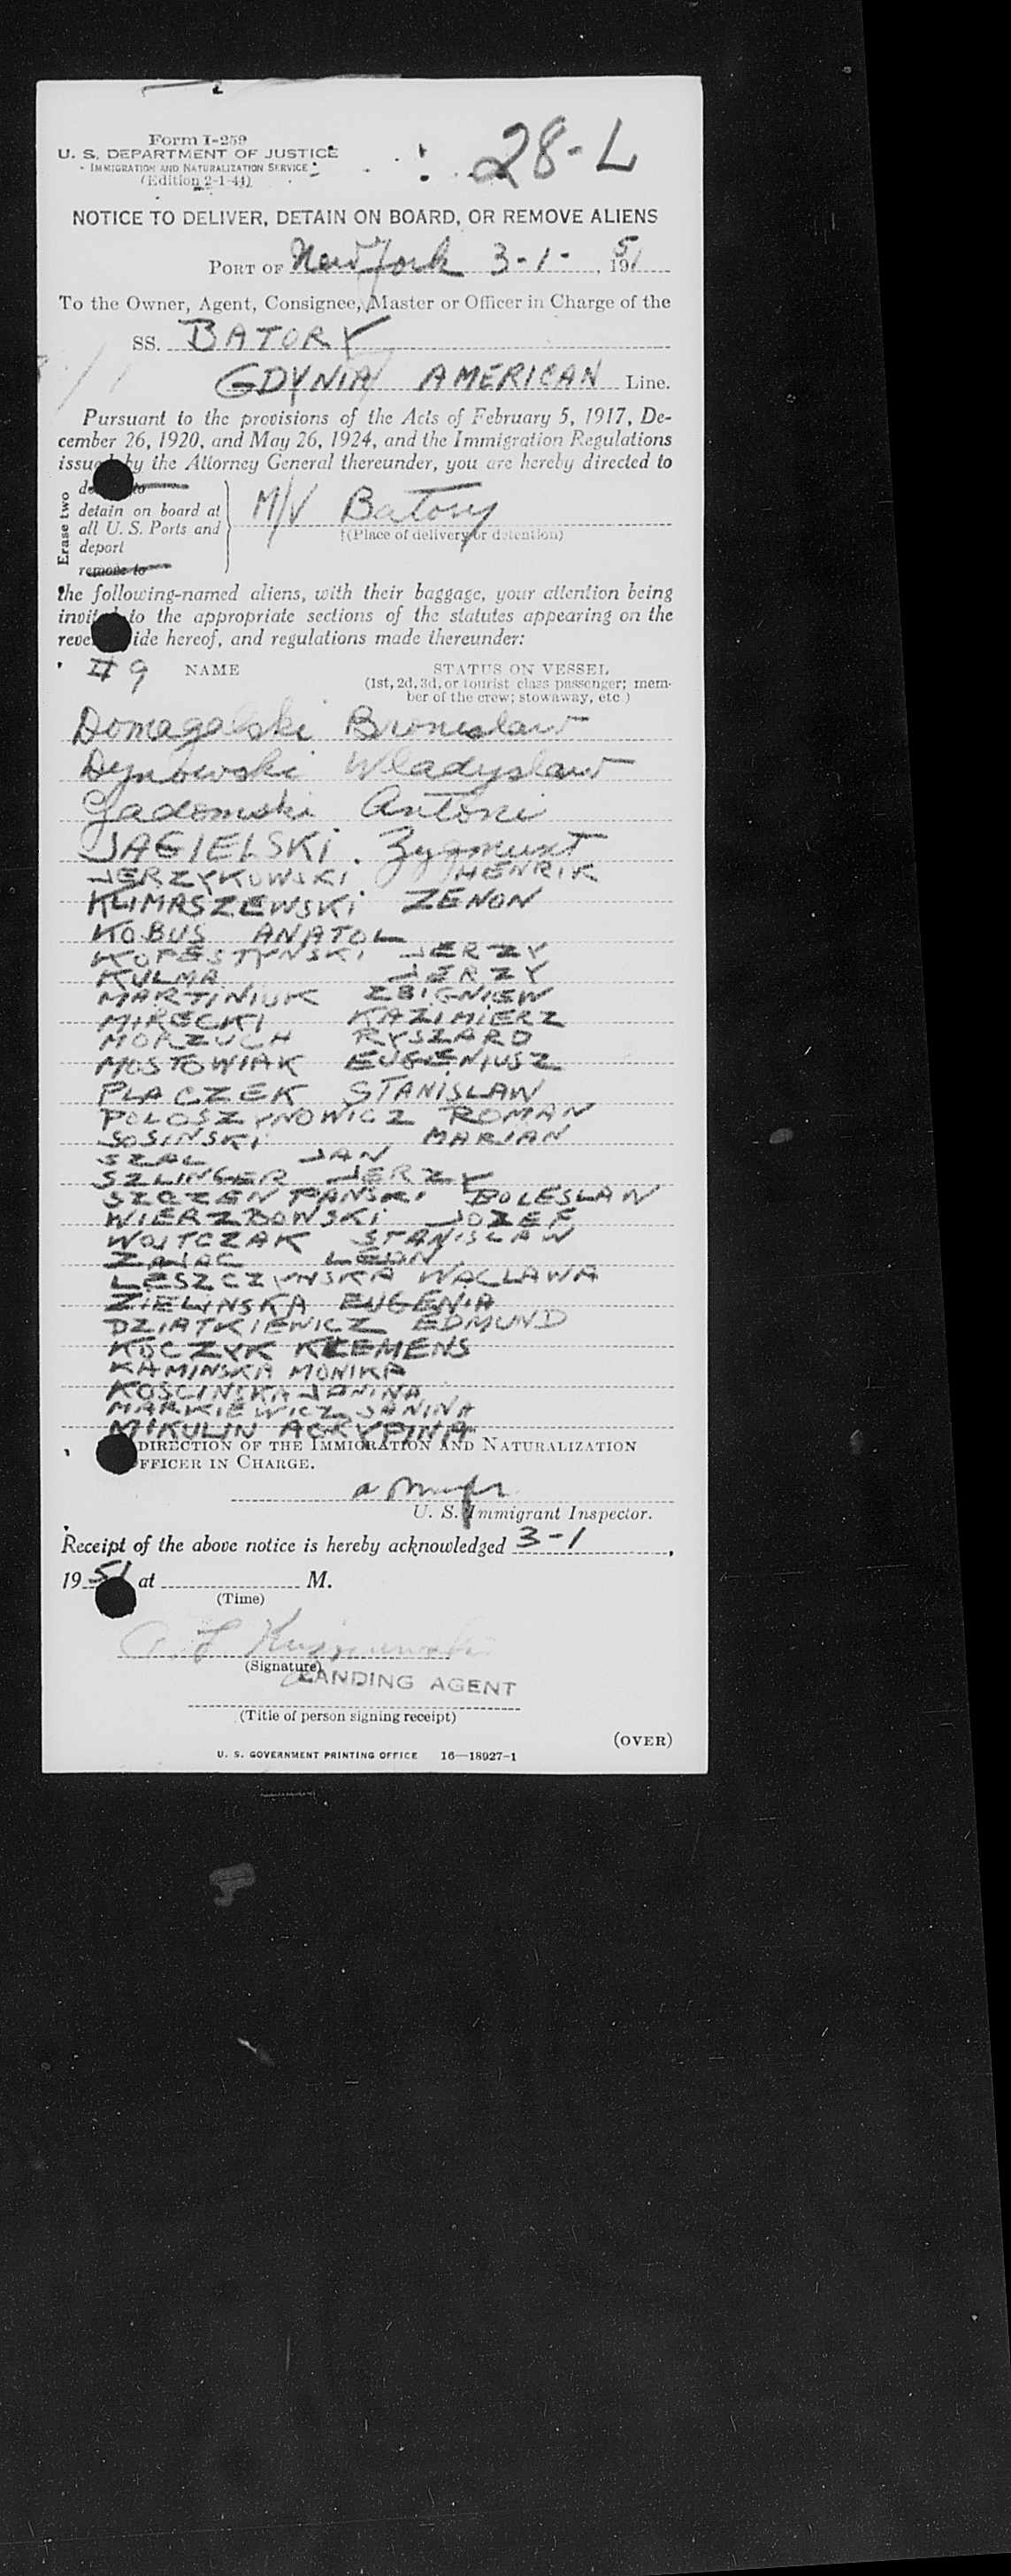 28-L
Form I-259
U. S. DEPARTMENT OF JUSTICE
IMMIGRATION AND NATURALIZATION SERVICE
(Edition 2-1-44)
NOTICE TO DELIVER, DETAIN ON BOARD, OR REMOVE ALIENS
PORT OF New York 3-1-, 1951
To the Owner, Agent, Consignee, Master or Officer in Charge of the
SS. BATORY
GDYNIA AMERICAN Line.
Pursuant to the provisions of the Acts of February 5, 1917, De-
cember 26, 1920, and May 26, 1924, and the Immigration Regulations
issued by the Attorney General thereunder, you are hereby directed to
Erase two
to
detain on board at
all U. S. Ports and
deport
remove to
M/V Batory
†(Place of delivery or detention)
the following-named aliens, with their baggage, your attention being
invited to the appropriate sections of the statutes appearing on the
reverse side hereof, and regulations made thereunder:
#9 NAME STATUS ON VESSEL
(1st, 2d, 3d, or tourist class passenger; mem-
ber of the crew; stowaway, etc.)
Domagalski Bronislaw
Dynowski Wladyslaw
Gadomski Antoni
JAGIELSKI. Zygmunt
JERZYKOWSKI HENRIK
KLIMASZEWSKI ZENON
KOBUS ANATOL
KOPESTYNSKI JERZY
KULMA JERZY
MARTINIUK ZBIGNIEW
MIRECKI KAZIMIERZ
MORZUCH RYSZARD
MOSTOWIAK EUGENIUSZ
PLACZEK STANISLAW
POLOSZYNOWICZ ROMAN
SOSINSKI MARIAN
SZAL JAN
SZLINGER JERZY
SZCZENPANSKI BOLESLAW
WIERZBOWSKI JOZEF
WOJTCZAK STANISLAW
ZAJAC LEON
LESZCZYNSKA WACLAWA
ZIELINSKA EUGENIA
DZIATKIEWICZ EDMUND
KOCZYK KLEMENS
KAMINSKA MONIKA
KOSCINSKA JANINA
MARKIEWICZ JANINA
MIKULIN AGRYPINA
DIRECTION OF THE IMMIGRATION AND NATURALIZATION
OFFICER IN CHARGE.
U. S. Immigrant Inspector.
Receipt of the above notice is hereby acknowledged 3-1,
1951 at M.
(Time)
(Signature)
LANDING AGENT
(Title of person signing receipt)
(OVER)
U. S. GOVERNMENT PRINTING OFFICE 16—18927-1